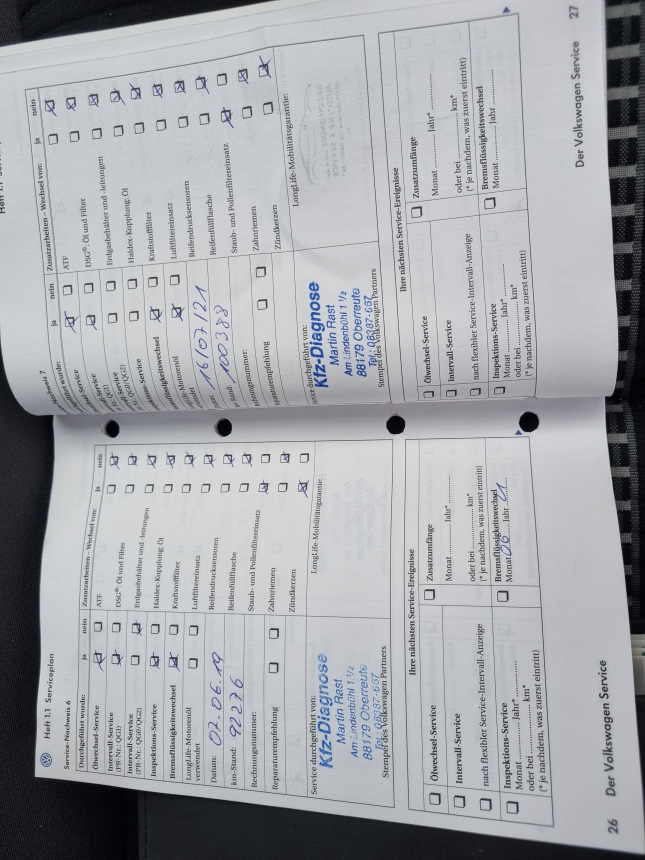 Heft 1.1 Serviceplan
Service-Nachweis 6
Durchgeführt wurde: ja nein
Ölwechsel-Service
Intervall-Service
(PR-Nr.: QG1)
Intervall-Service
(PR-Nr. QG0/QG2)
Inspektions-Service
Bremsflüssigkeitswechsel
LongLife-Motorenöl
verwendet
Datum: 07.06.19
km-Stand: 92276
Rechnungsnummer:
Reparaturempfehlung
Zusatzarbeiten – Wechsel von: ja nein
ATF
DSG®: Öl und Filter
Erdgasbehälter und -leitungen
Haldex-Kupplung: Öl
Kraftstofffilter
Luftfiltereinsatz
Reifendrucksensoren
Reifenfüllflasche
Staub- und Pollenfiltereinsatz
Zahnriemen
Zündkerzen
Service durchgeführt von:
Kfz-Diagnose
Martin Rast
Am Lindenbühl 1 1/2
88179 Oberreute
Tel.: 08387-667
Stempel des Volkswagen Partners
LongLife-Mobilitätsgarantie:
Ihre nächsten Service-Ereignisse
Ölwechsel-Service
Intervall-Service
nach flexibler Service-Intervall-Anzeige
Inspektions-Service
Monat Jahr*
oder bei km*
(* je nachdem, was zuerst eintritt)
Zusatzumfänge
Monat Jahr*
oder bei km*
(* je nachdem, was zuerst eintritt)
Bremsflüssigkeitswechsel
Monat 06 Jahr 21
26 Der Volkswagen Service
Nachweis 7
ja nein
Bremsflüssigkeitswechsel
LongLife-Motorenöl
16/07/21
100388
Reparaturempfehlung
Zusatzarbeiten – Wechsel von: ja nein
ATF
DSG®: Öl und Filter
Erdgasbehälter und -leitungen
Haldex-Kupplung: Öl
Kraftstofffilter
Luftfiltereinsatz
Reifendrucksensoren
Reifenfüllflasche
Staub- und Pollenfiltereinsatz
Zahnriemen
Zündkerzen
Service durchgeführt von:
Kfz-Diagnose
Martin Rast
Am Lindenbühl 1 1/2
88179 Oberreute
Tel.: 08387-667
Stempel des Volkswagen Partners
LongLife-Mobilitätsgarantie:
Ihre nächsten Service-Ereignisse
Ölwechsel-Service
Intervall-Service
nach flexibler Service-Intervall-Anzeige
Inspektions-Service
Monat Jahr*
oder bei km*
(* je nachdem, was zuerst eintritt)
Zusatzumfänge
Monat Jahr*
oder bei km*
(* je nachdem, was zuerst eintritt)
Bremsflüssigkeitswechsel
Monat Jahr
Der Volkswagen Service 27